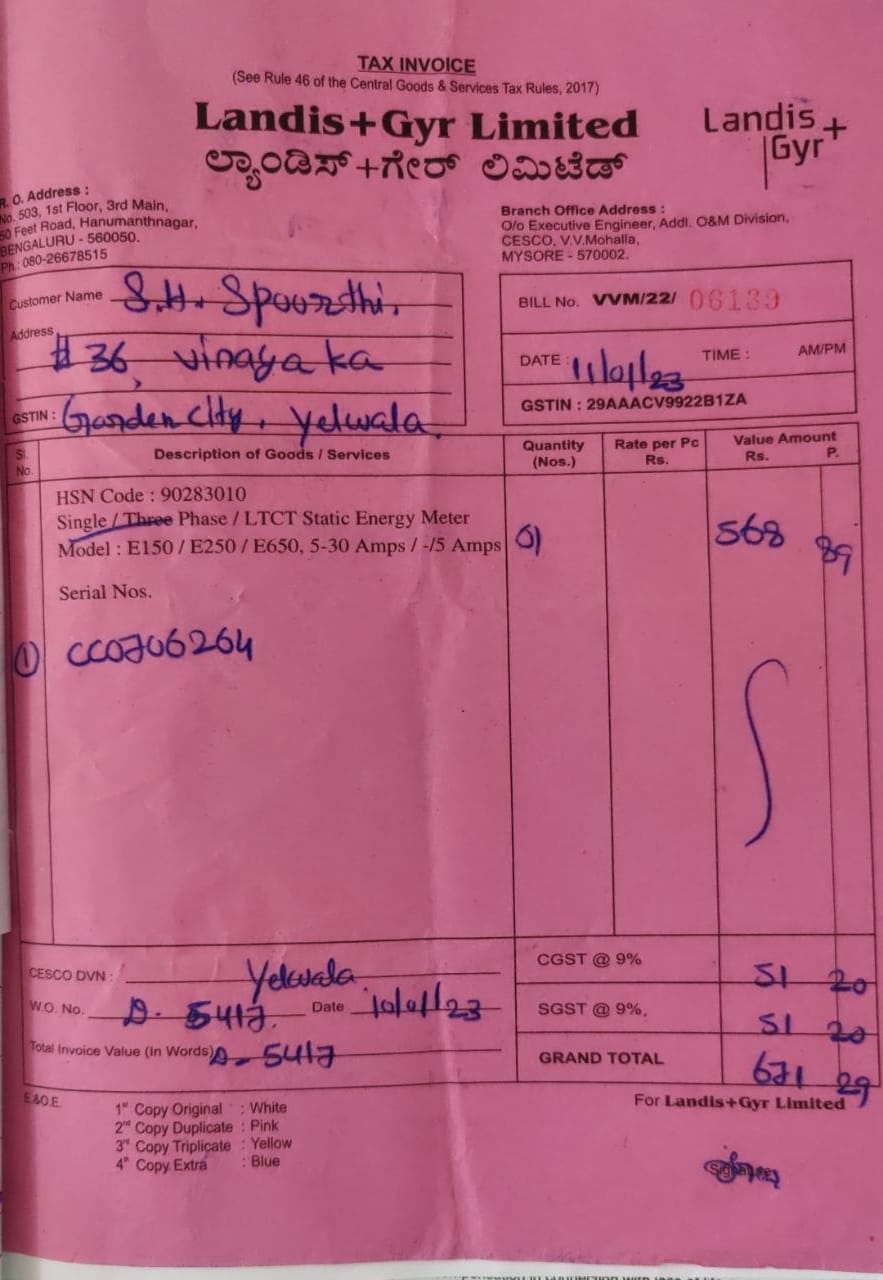 TAX INVOICE
(See Rule 46 of the Central Goods & Services Tax Rules, 2017)
Landis+Gyr Limited
ಲ್ಯಾಂಡಿಸ್+ಗೇರ್ ಲಿಮಿಟೆಡ್
Landis
Gyr+
R. O. Address :
No. 503, 1st Floor, 3rd Main,
50 Feet Road, Hanumanthnagar,
BENGALURU - 560050.
Ph : 080-26678515
Branch Office Address :
O/o Executive Engineer, Addl. O&M Division,
CESCO, V.V.Mohalla,
MYSORE - 570002.
Customer Name S.H. Spoorthi.
Address
# 36, vinayaka
GSTIN : Garden city, Yelwala.
BILL No. VVM/22/ 06139
DATE : 11/01/23 TIME : AM/PM
GSTIN : 29AAACV9922B1ZA
Sl. No. Description of Goods / Services Quantity (Nos.) Rate per Pc Rs. Value Amount Rs. P.
HSN Code : 90283010
Single / Three Phase / LTCT Static Energy Meter
Model : E150 / E250 / E650, 5-30 Amps / -/5 Amps 01 568 89
Serial Nos.
① CC0706264
CESCO DVN : Yelwala
W.O. No. D. 5417. Date 10/01/23
Total Invoice Value (In Words) D- 5417
CGST @ 9% 51 20
SGST @ 9%. 51 20
GRAND TOTAL 671 29
E.&O.E.
1st Copy Original : White
2nd Copy Duplicate : Pink
3rd Copy Triplicate : Yellow
4th Copy Extra : Blue
For Landis+Gyr Limited